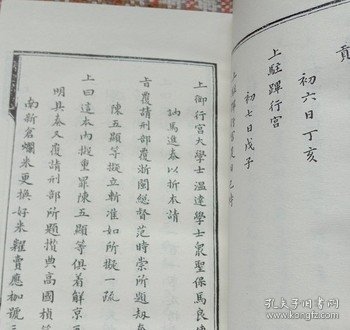 貢
初六日丁亥
上駐蹕行宮
初七日戊子
上御行宮大學士溫達學士
聖保馬良
訥馬進泰以折本請
旨覆請刑部覆浙閩總督范時崇所題劫
陳五顯等擬立斬准如所擬一疏
上曰這本內擬重罪陳五顯等俱着解京
明具奏又覆請刑部所題攢典高國楨
南新倉爛米更換好米糶賣應枷號三
孔夫子旧书网